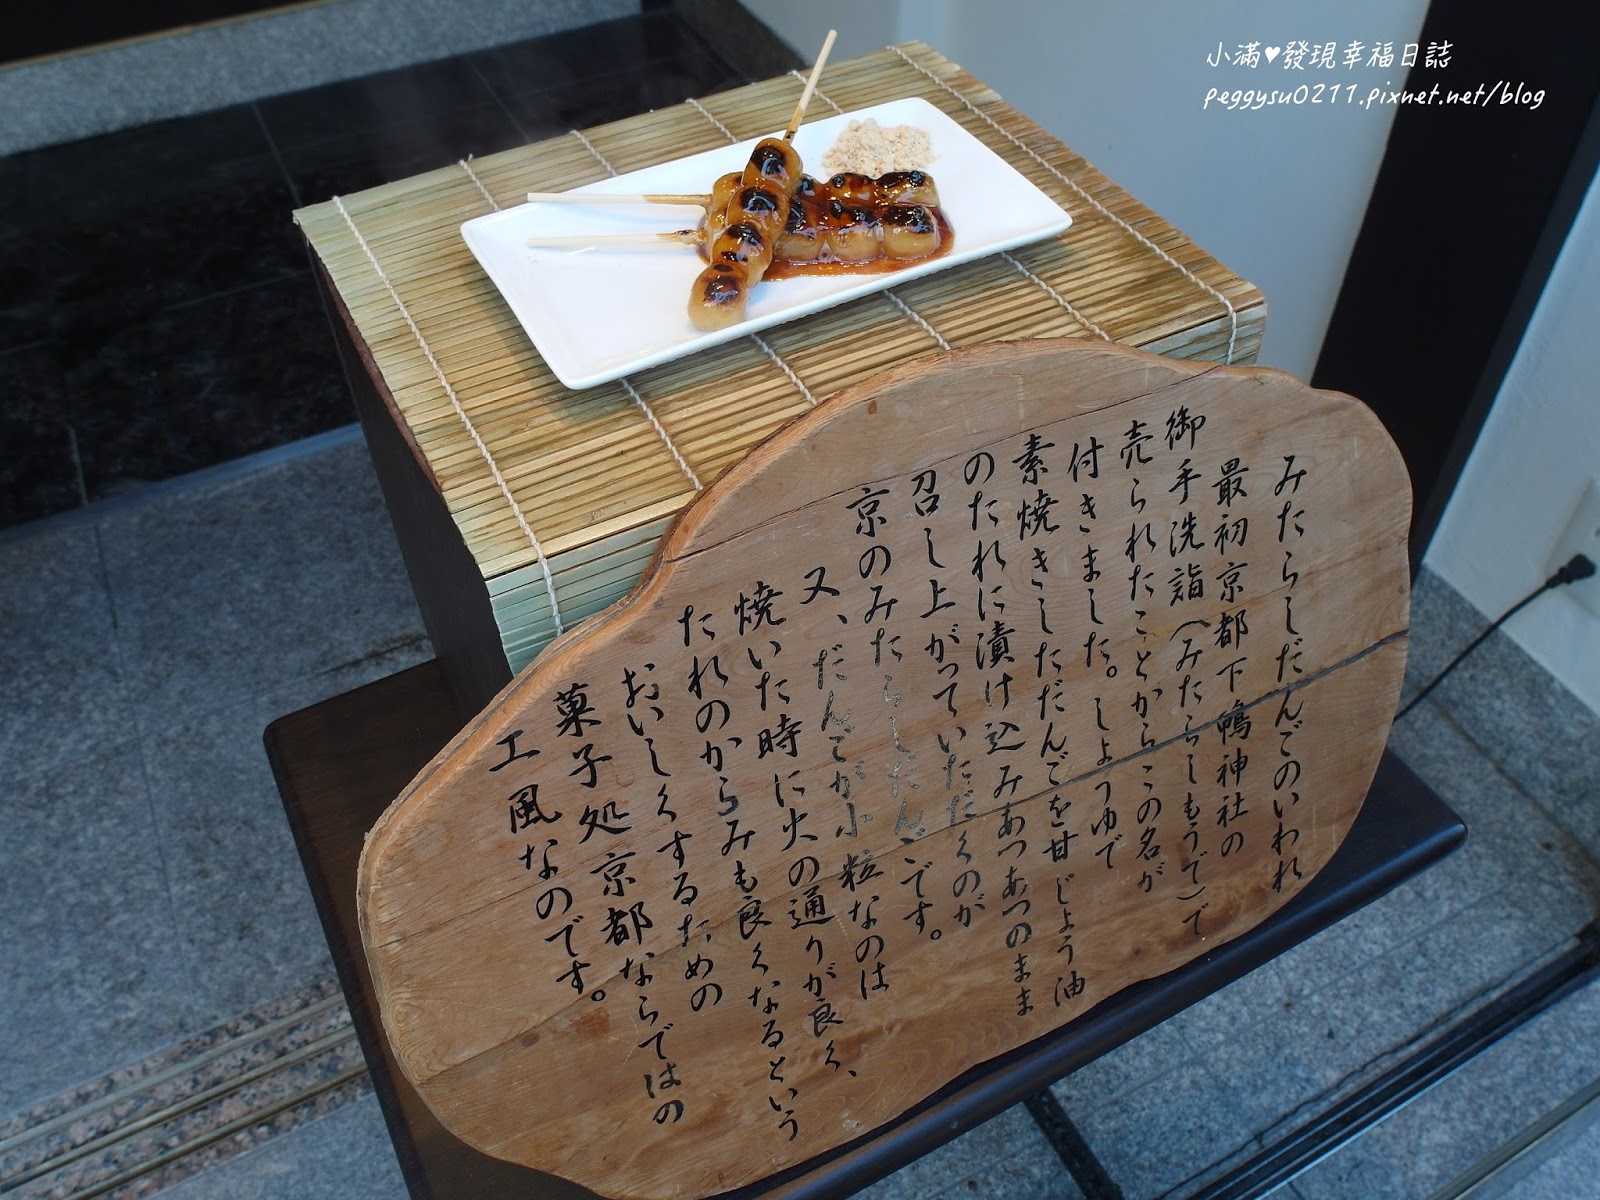 小滿♥發現幸福日誌
peggysu0211.pixnet.net/blog
みたらしだんごのいわれ
最初京都下鴨神社の
御手洗詣(みたらしもうで)で
売られたことからこの名が
付きました。しょうゆで
素焼きしただんごを甘じょう油
のたれに漬け込みあつあつのまま
召し上がっていただくのが
京のみたらしだんごです。
又、だんごが小粒なのは
焼いた時に火の通りが良く、
たれのからみも良くなるという
おいしくするための
菓子処京都ならではの
工風なのです。